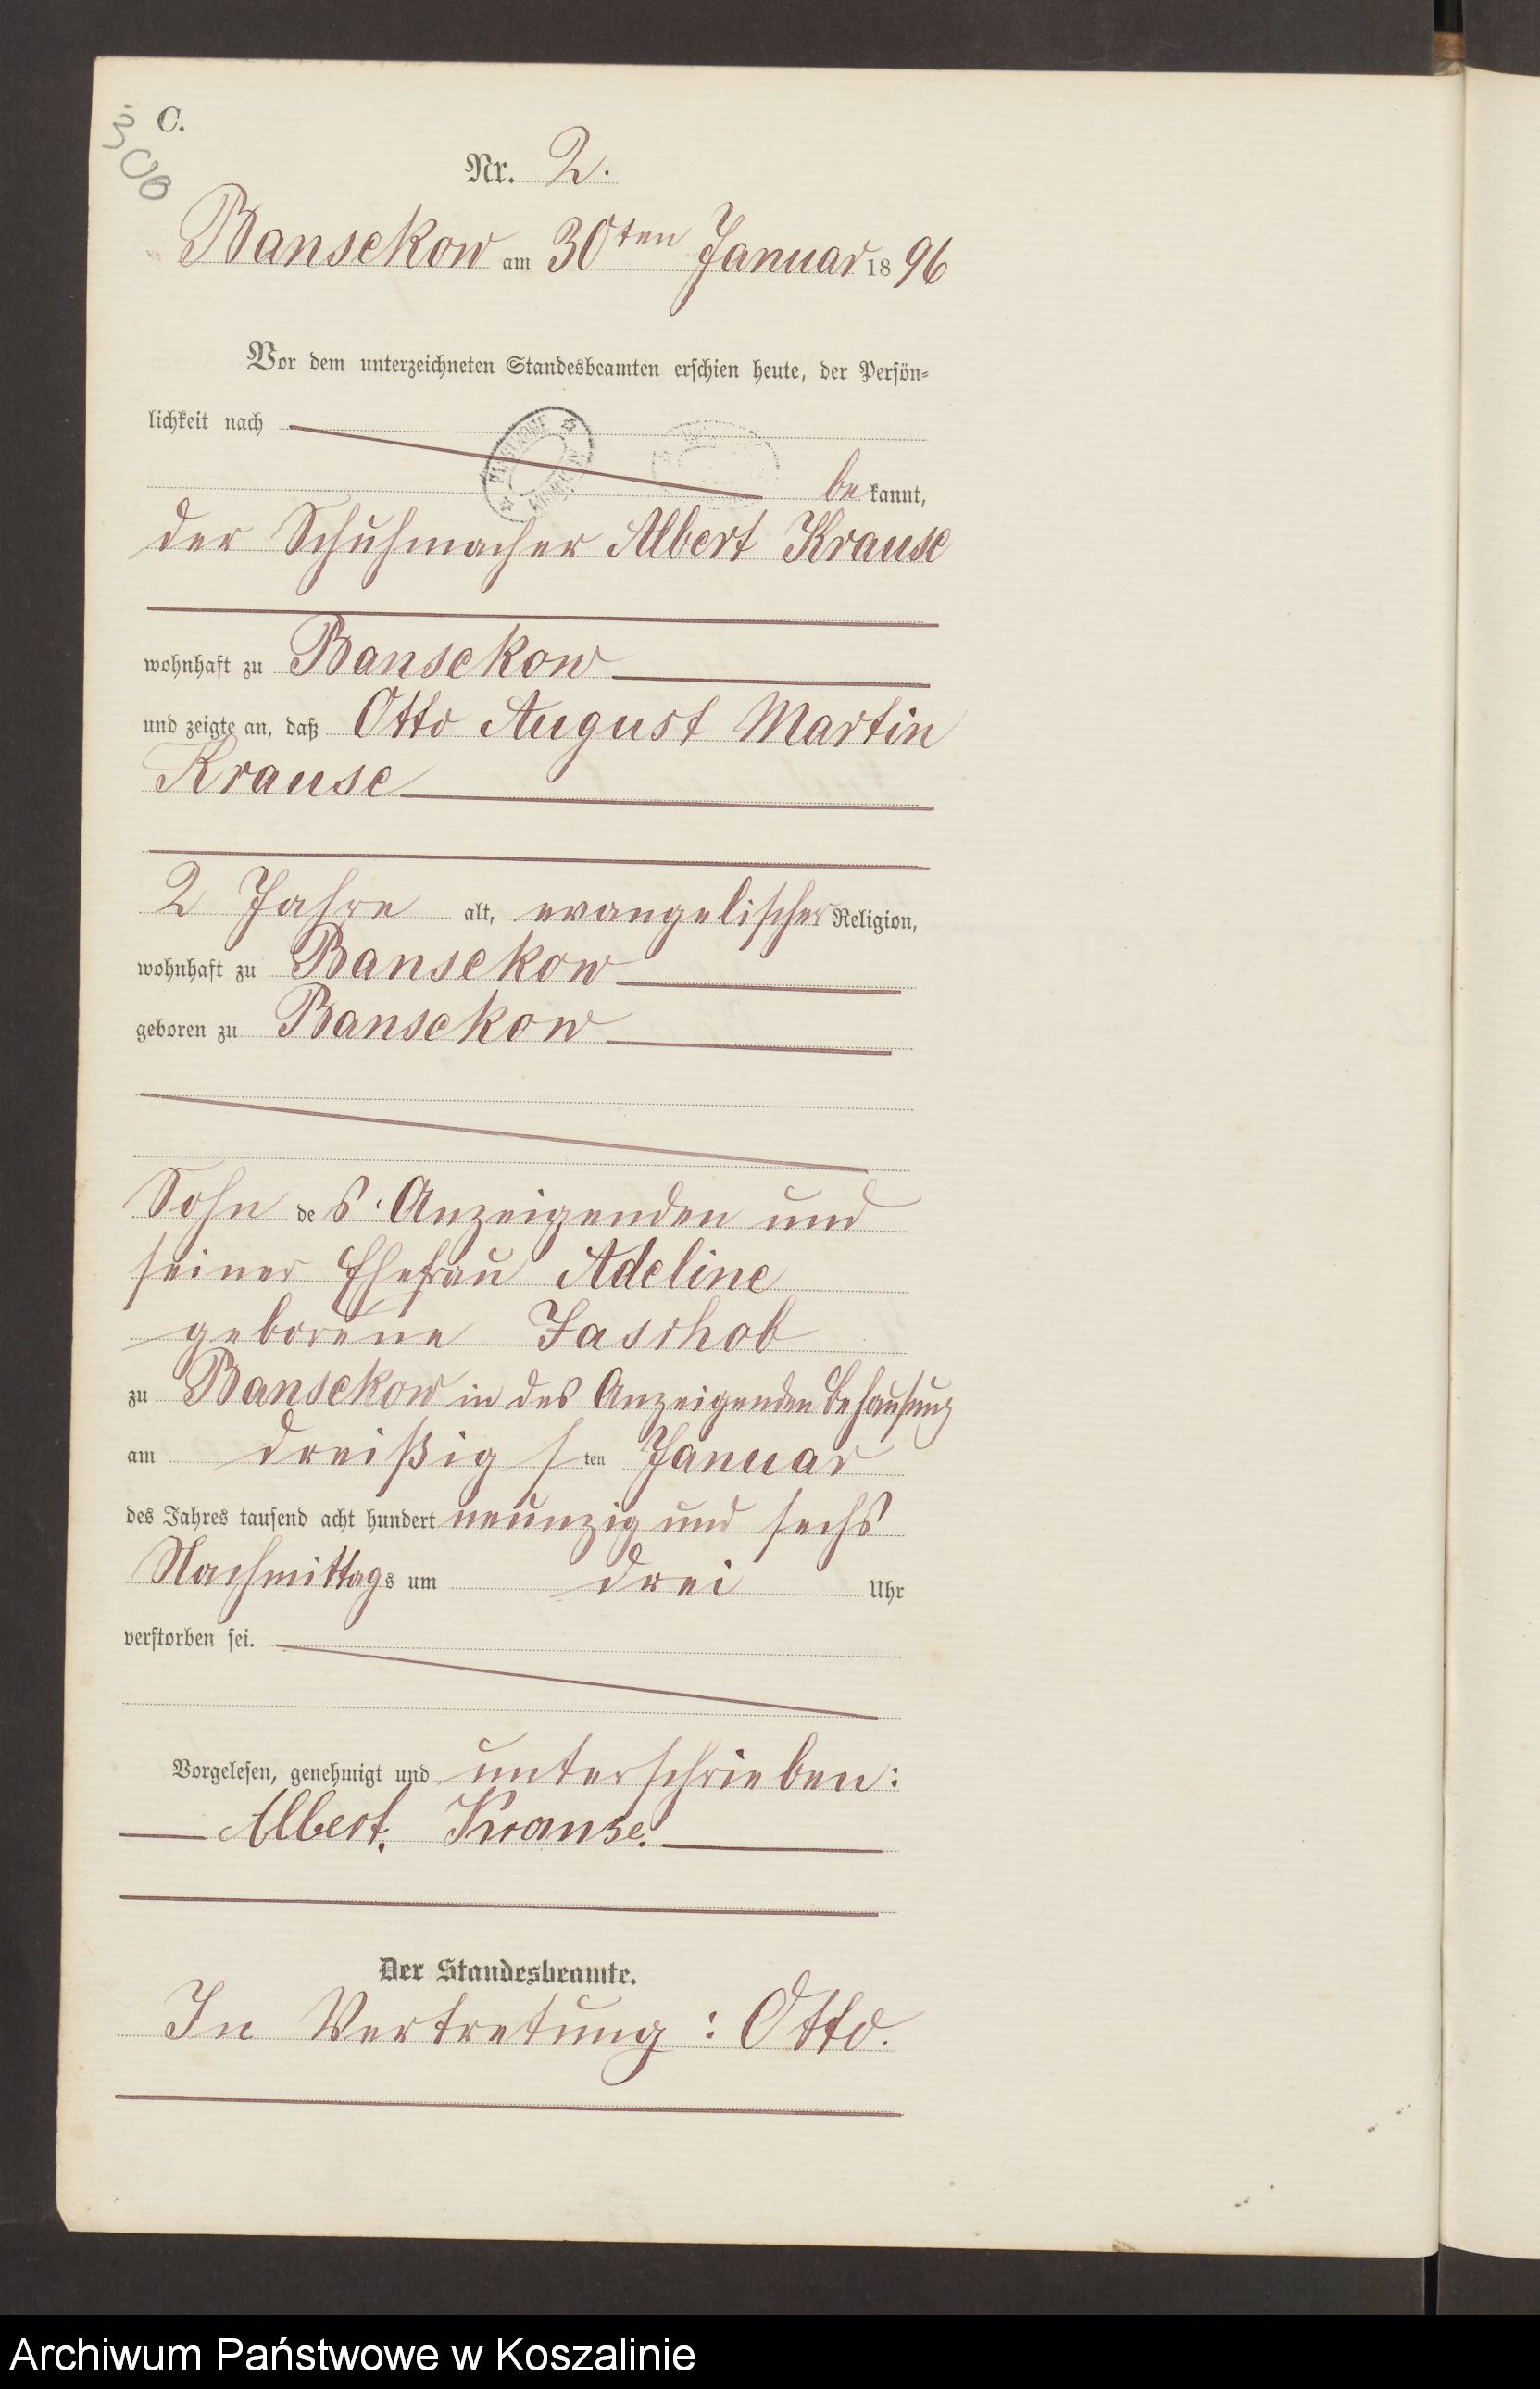 C.
300
Nr. 2.
Bansekow am 30ten Januar 1896
Vor dem unterzeichneten Standesbeamten erschien heute, der Persön-
lichkeit nach
be kannt,
der Schuhmacher Albert Krause
wohnhaft zu Bansekow
und zeigte an, daß Otto August Martin
Krause
2 Jahre alt, evangelischer Religion,
wohnhaft zu Bansekow
geboren zu Bansekow
Sohn des Anzeigenden und
seiner Ehefrau Adeline
geborene Jaschob
zu Bansekow in des Anzeigenden Behausung
am dreißigsten Januar
des Jahres tausend acht hundert neunzig und sechs
Nachmittags um drei Uhr
verstorben sei.
Vorgelesen, genehmigt und unterschrieben:
Albert. Krause.
Der Standesbeamte.
In Vertretung: Otto.
Archiwum Państwowe w Koszalinie